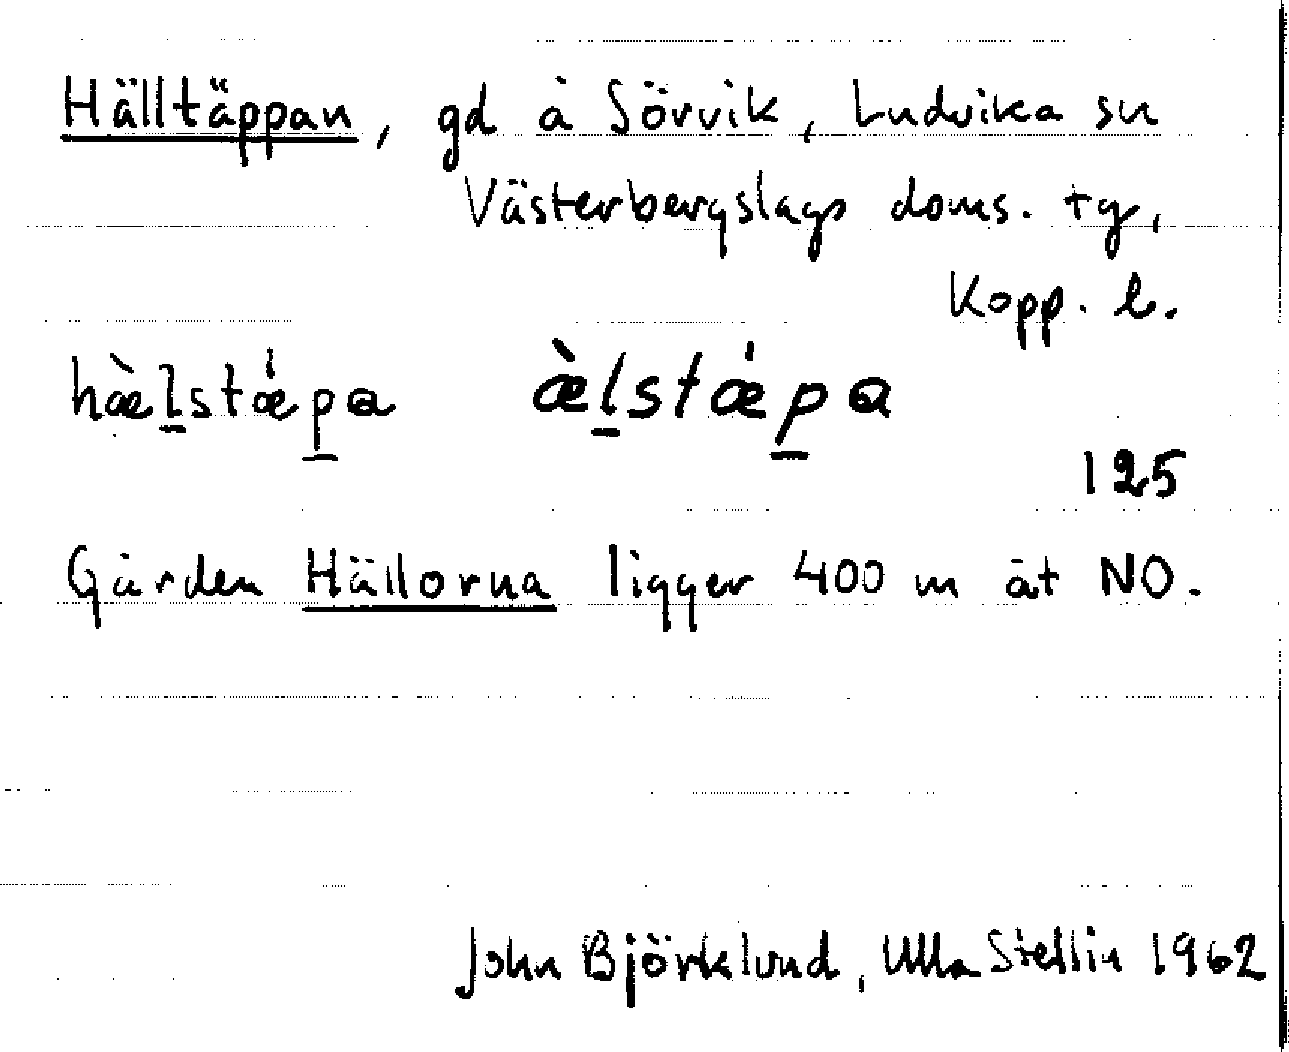 Hälltäppan, gd å Sörvik, Ludvika sn
Västerbergslags doms. tg,
Kopp. l.
hæ̀l̠stǽp̠a æ̀l̠stǽp̠a
125
Gården Hällorna ligger 400 m åt NO.
John Björklund, Ulla Stellin 1962